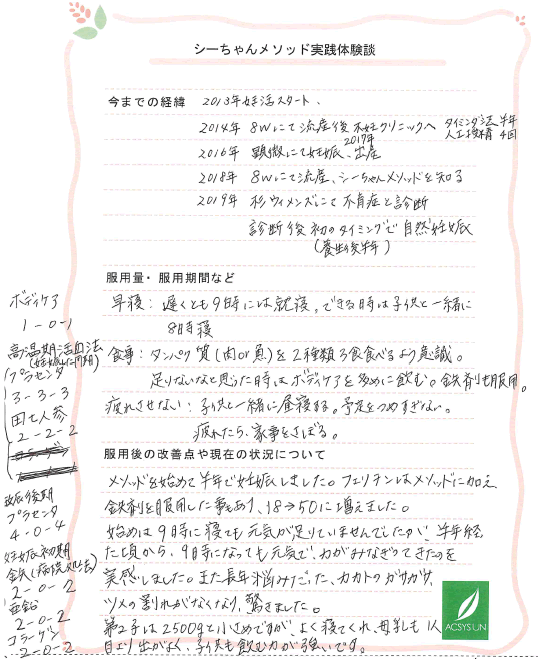 シーちゃんメソッド実践体験談
今までの経緯 2013年妊活スタート、
2014年 8wにて流産後 不妊クリニックへ タイミング法半年
人工授精 4回
2016年 顕微にて妊娠、2017年出産
2018年 8wにて流産、シーちゃんメソッドを知る
2019年 杉ウィメンズにて 不育症と診断
診断後 初のタイミングで 自然妊娠
(養生後半年)
服用量・服用期間など
早寝: 遅くとも9時には就寝。できる時は子供と一緒に
8時寝
食事: タンパク質(肉or魚)を2種類3食食べるよう意識。
足りないなと思った時はボディケアを多めに飲む。鉄剤も服用。
疲れさせない: 子供と一緒に昼寝する。予定をつめすぎない。
疲れたら、家事をさぼる。
服用後の改善点や現在の状況について
メソッドを始めて半年で妊娠しました。フェリチンはメソッドに加え
鉄剤を服用した事もあり、18→50に増えました。
始めは9時に寝ても元気が足りていませんでしたが、半年経
た頃から、9時になっても元気で、力がみなぎってきたのを
実感しました。また長年悩みだった、カカトのガサガサ、
ツメの割れがなくなり、驚きました。
第2子は2500gと小さめですが、よく寝てくれ、母乳も1人
目より出がよく、子供も飲む力が強いです。
ボディケア
1-0-1
高温期活血法
(妊娠した周期)
プラセンタ
3-3-3
田七人参
2-2-2
妊娠後期
プラセンタ
4-0-4
妊娠初期
鉄(病院処方)
2-0-2
亜鉛
2-0-2
コラーゲン
2-0-2
ACSYSUN